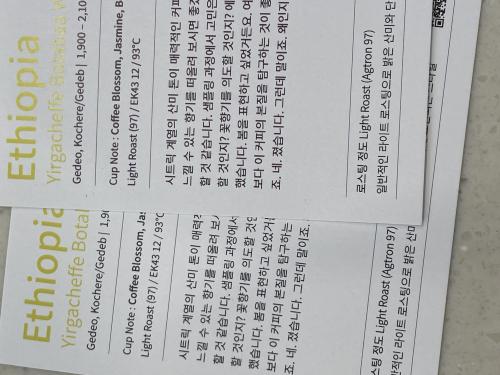 Ethiopia
Yirgacheffe Botanica W
Gedeo, Kochere/Gedeb | 1,900 – 2,10
Cup Note : Coffee Blossom, Jasmine, B
Light Roast (97) / EK43 12 / 93°C
시트릭 계열의 산미 톤이 매력적인 커피
느낄 수 있는 향기를 떠올려 보시면 좋겠
할 것 같습니다. 샘플링 과정에서 고민은
할 것인지? 꽃향기를 의도할 것인지? 에
했습니다. 봄을 표현하고 싶었거든요. 여
보다 이 커피의 본질을 탐구하는 것이 좋
죠. 네. 졌습니다. 그런데 말이죠. 왜인지
로스팅 정도 Light Roast (Agtron 97)
일반적인 라이트 로스팅으로 밝은 산미와 단
Ethiopia
Yirgacheffe Botan
Gedeo, Kochere/Gedeb | 1,90
Cup Note : Coffee Blossom, Jas
Light Roast (97) / EK43 12 / 93°C
시트릭 계열의 산미 톤이 매력
느낄 수 있는 향기를 떠올려 보
할 것 같습니다. 샘플링 과정에서
할 것인지? 꽃향기를 의도할 것인
했습니다. 봄을 표현하고 싶었거
보다 이 커피의 본질을 탐구하는
죠. 네. 졌습니다. 그런데 말이죠.
스팅 정도 Light Roast (Agtron 97)
반적인 라이트 로스팅으로 밝은 산미